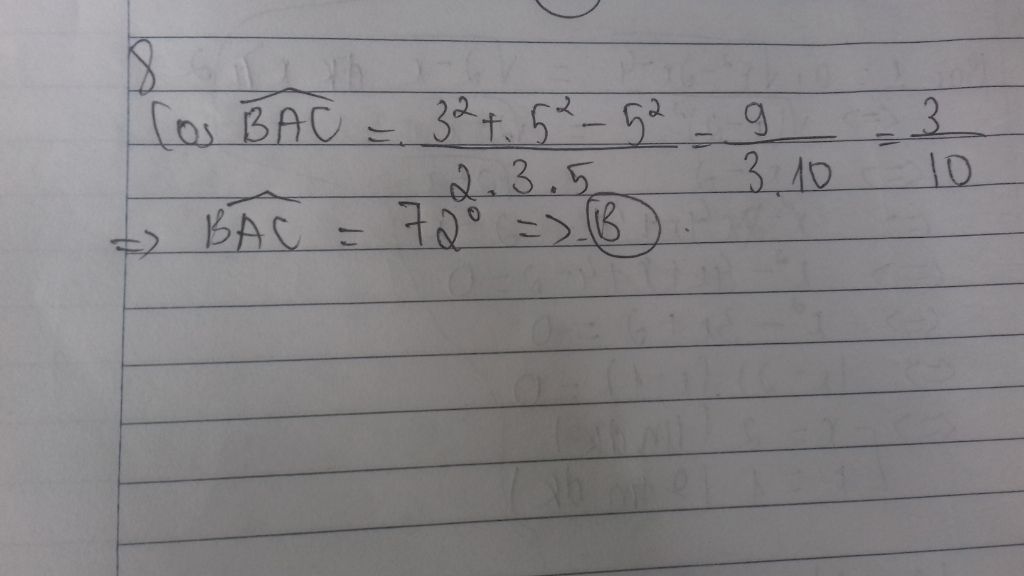 8
Cos BAC = 3² + 5² - 5² / 2.3.5 = 9 / 3.10 = 3 / 10
=> BAC = 72° => B.